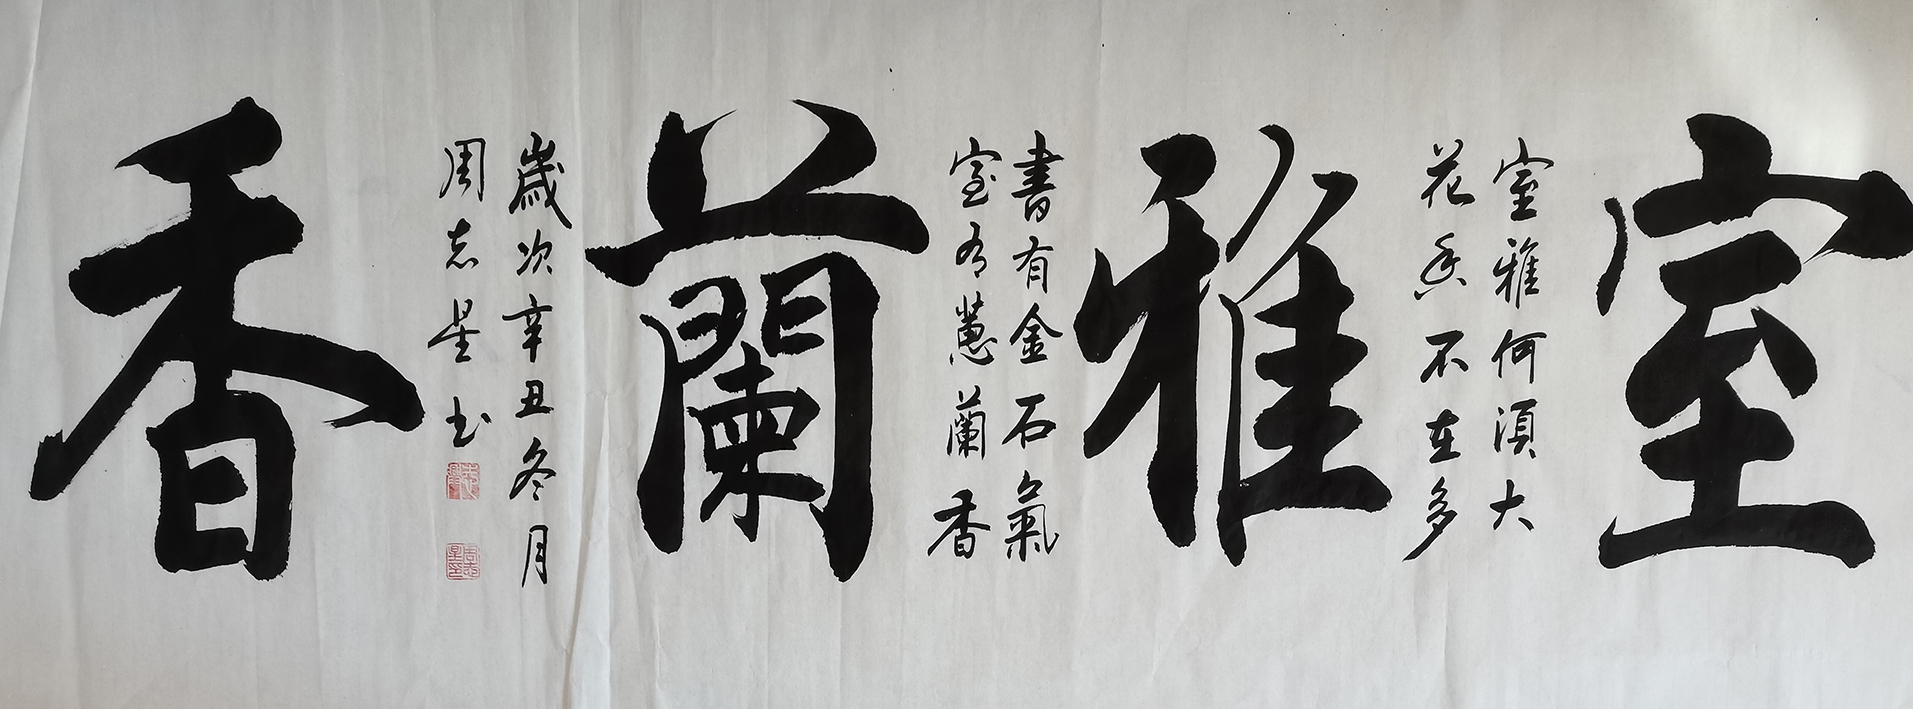 室
室雅何須大
花香不在多
雅
書有金石氣
室有蕙蘭香
蘭
歲次辛丑冬月
周志星书
香